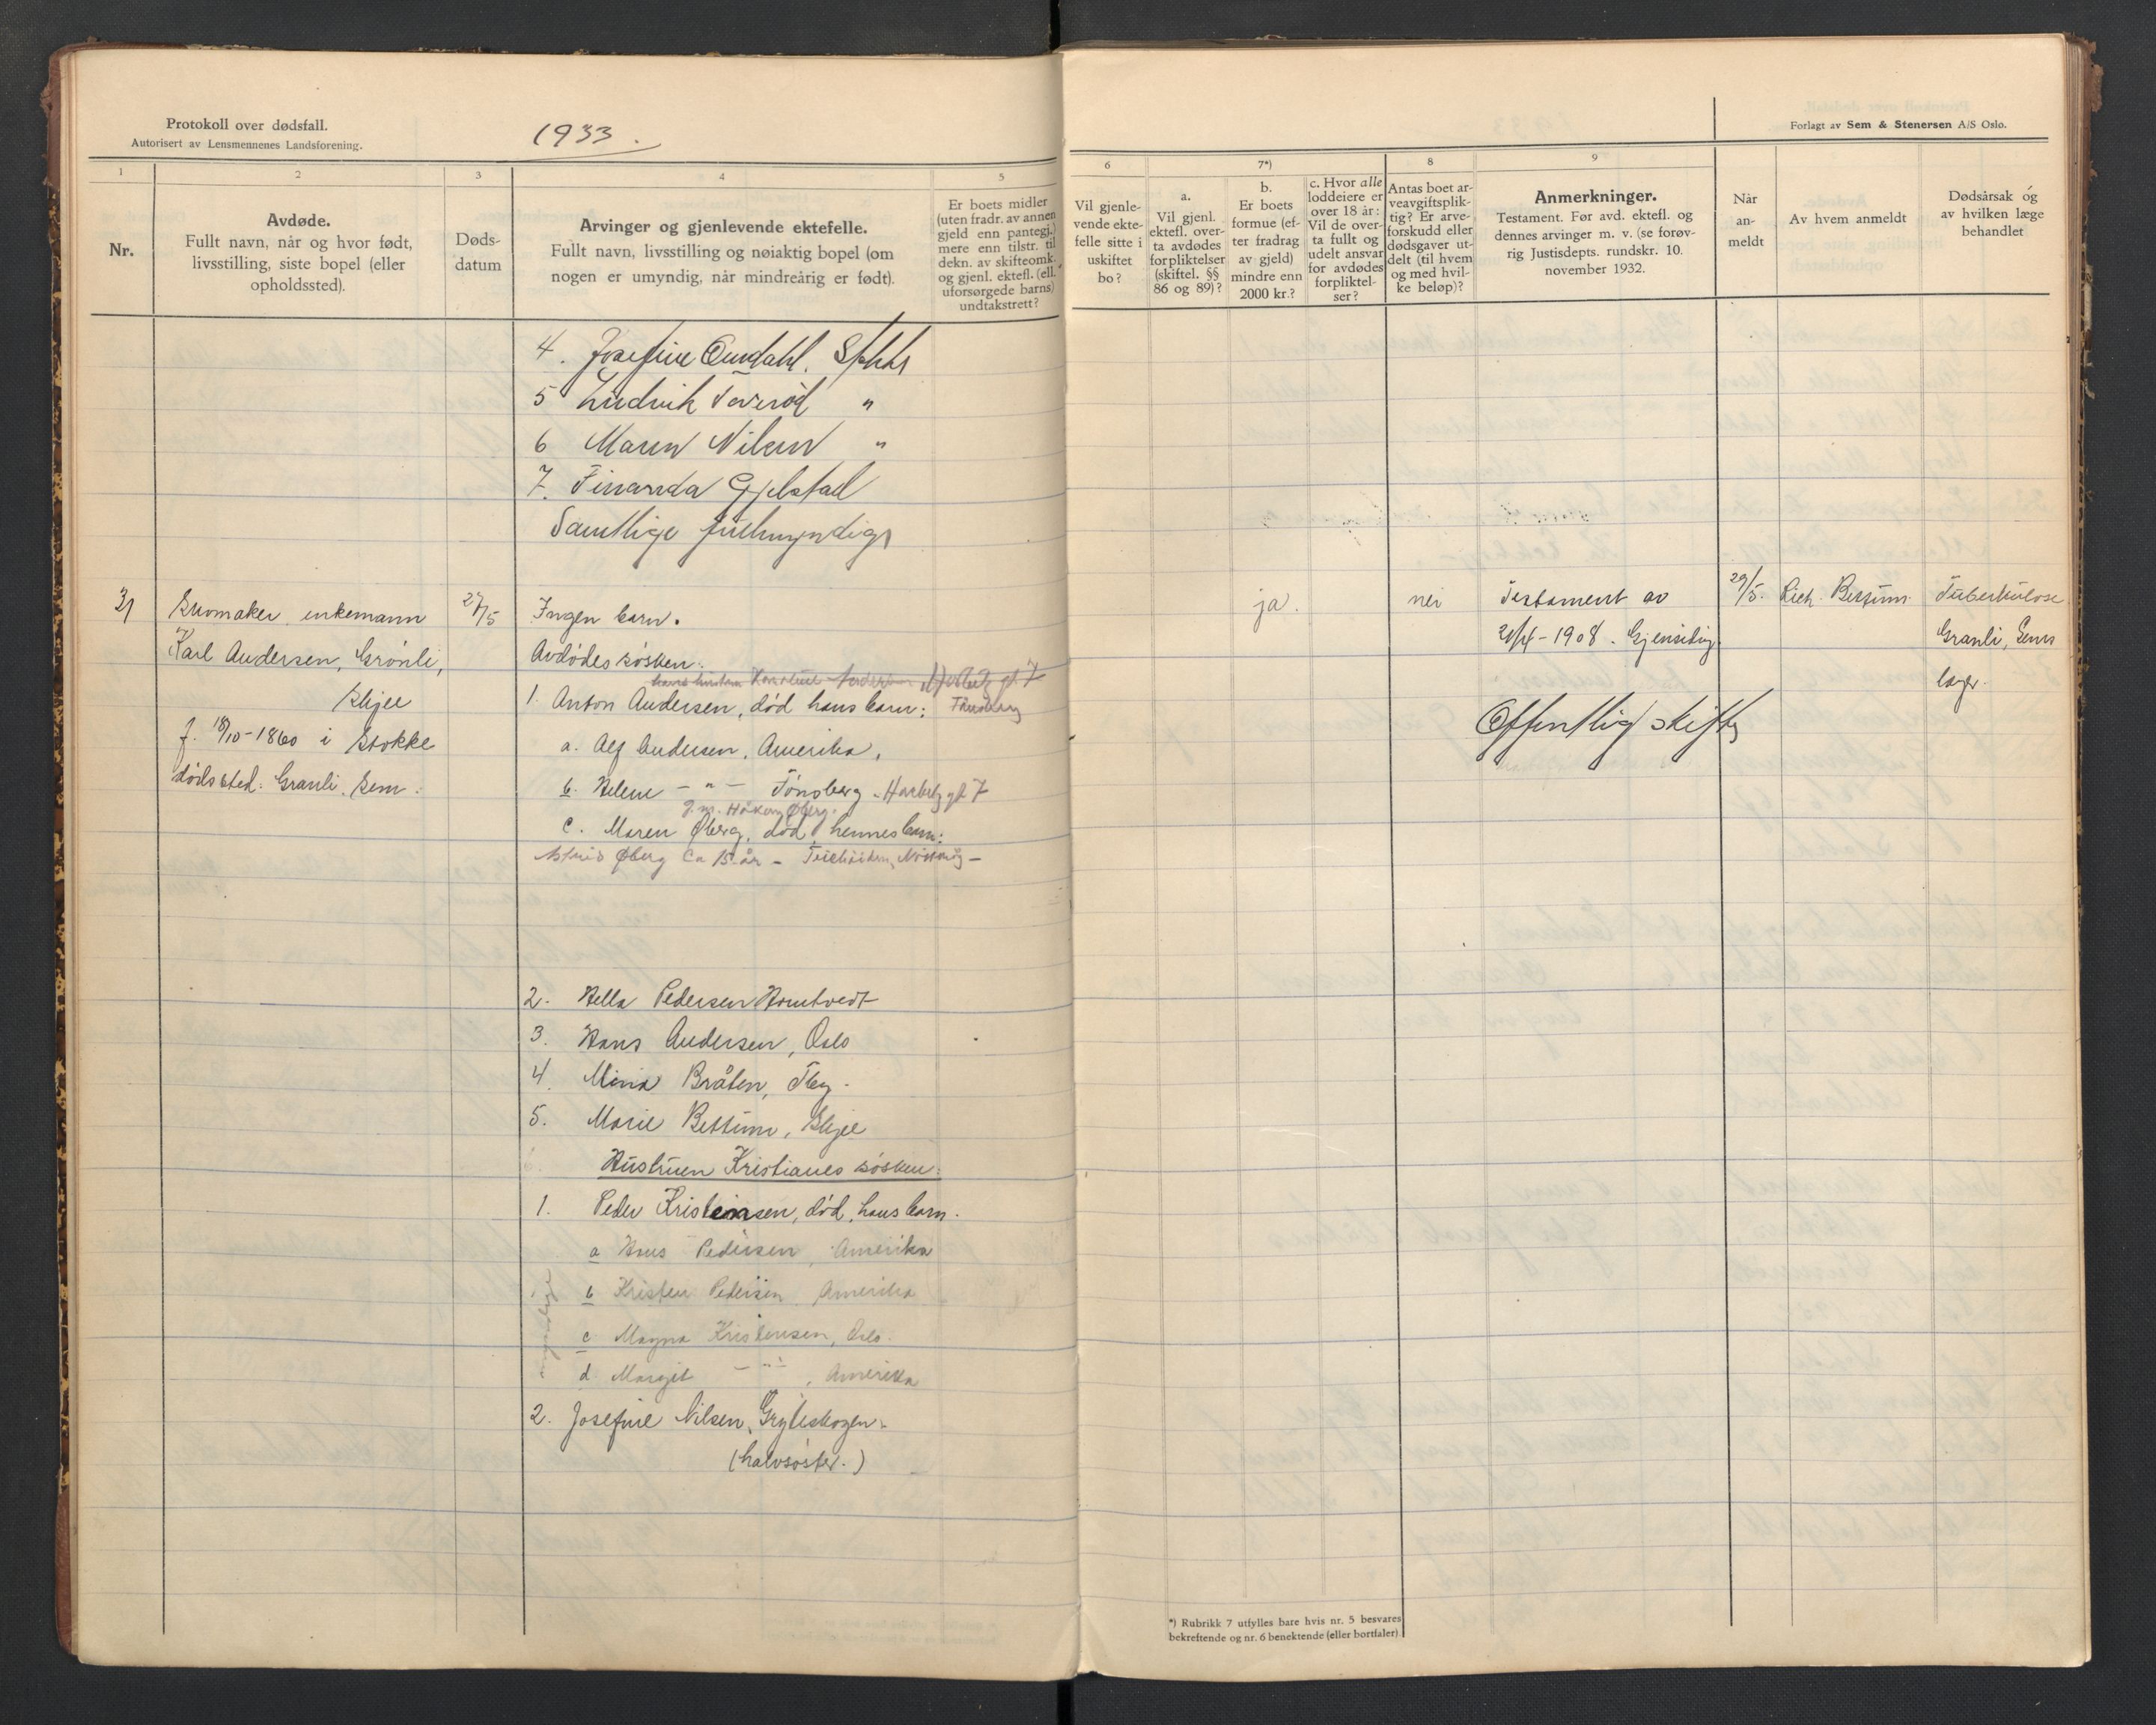 Protokoll over dødsfall.
Autorisert av Lensmennenes Landsforening.
1933.
Forlagt av Sem & Stenersen A/S Oslo.
1
2
3
4
5
6
7*)
8
9
Nr.
Avdøde.
Fullt navn, når og hvor født,
livsstilling, siste bopel (eller
opholdssted).
Døds-
datum
Arvinger og gjenlevende ektefelle.
Fullt navn, livsstilling og nøiaktig bopel (om
nogen er umyndig, når mindreårig er født).
Er boets midler
(uten fradr. av annen
gjeld enn pantegj.)
mere enn tilstr. til
dekn. av skifteomk.
og gjenl. ektefl. (ell.
uforsørgede barns)
undtakstrett?
Vil gjenle-
vende ekte-
felle sitte i
uskiftet
bo?
a.
Vil gjenl.
ektefl. over-
ta avdødes
forpliktelser
(skiftel. §§
86 og 89)?
b.
Er boets
formue (ef-
ter fradrag
av gjeld)
mindre enn
2000 kr.?
c. Hvor alle
loddeiere er
over 18 år:
Vil de over-
ta fullt og
udelt ansvar
for avdødes
forpliktel-
ser?
Antas boet ar-
veavgiftsplik-
tig? Er arve-
forskudd eller
dødsgaver ut-
delt (til hvem
og med hvil-
ke beløp)?
Anmerkninger.
Testament. Før avd. ektefl. og
dennes arvinger m. v. (se forøv-
rig Justisdepts. rundskr. 10.
november 1932.
Når
an-
meldt
Av hvem anmeldt
Dødsårsak og
av hvilken læge
behandlet
4. Josefine Omdahl, Stokke
5 Ludvik Taverød "
6 Maren Nilsen "
7. Finanda Gjelstad
Samtlige fullmyndige
31
Skomaker, enkemann
Karl Andersen, Grønli,
Skjee
f. 18/10-1860 i Stokke
dødssted: Granli, Sem.
27/5
Ingen barn.
Avdødes søsken:
hans hustru Andersen Harbitz gt 7
Tønsberg
1. Anton Andersen, død hans barn:
a. Alf Andersen, Amerika,
b. Helene - " - Tønsberg. Harbitz gt 7
g.m. Håkon Øberg.
c. Maren Øberg, død, hennes barn:
Astrid Øberg ca 15 år - Nøtterøy -
2. Hella Pedersen Homtvedt
3. Hans Andersen, Oslo
4. Mina Bråten, Tbg.
5. Marie Bettum, Skjee
Hustruen Kristianes søsken:
1. Peder Kristensen, død, hans barn.
a Hans Pedersen, Amerika
b Kristen Pedersen, Amerika
c Magna Kristensen, Oslo.
d. Margit - " - , Amerika
2. Josefine Nilsen, Gryteskogen.
(halvsøster.)
ja.
nei
Testament av
21/4-1908. Gjensidig.
Offentlig skifte
29/5.
Rich. Bettum
Tuberkulose
Granli, Sems
læge.
*) Rubrikk 7 utfylles bare hvis nr. 5 besvares
bekreftende og nr. 6 benektende (eller bortfaler)